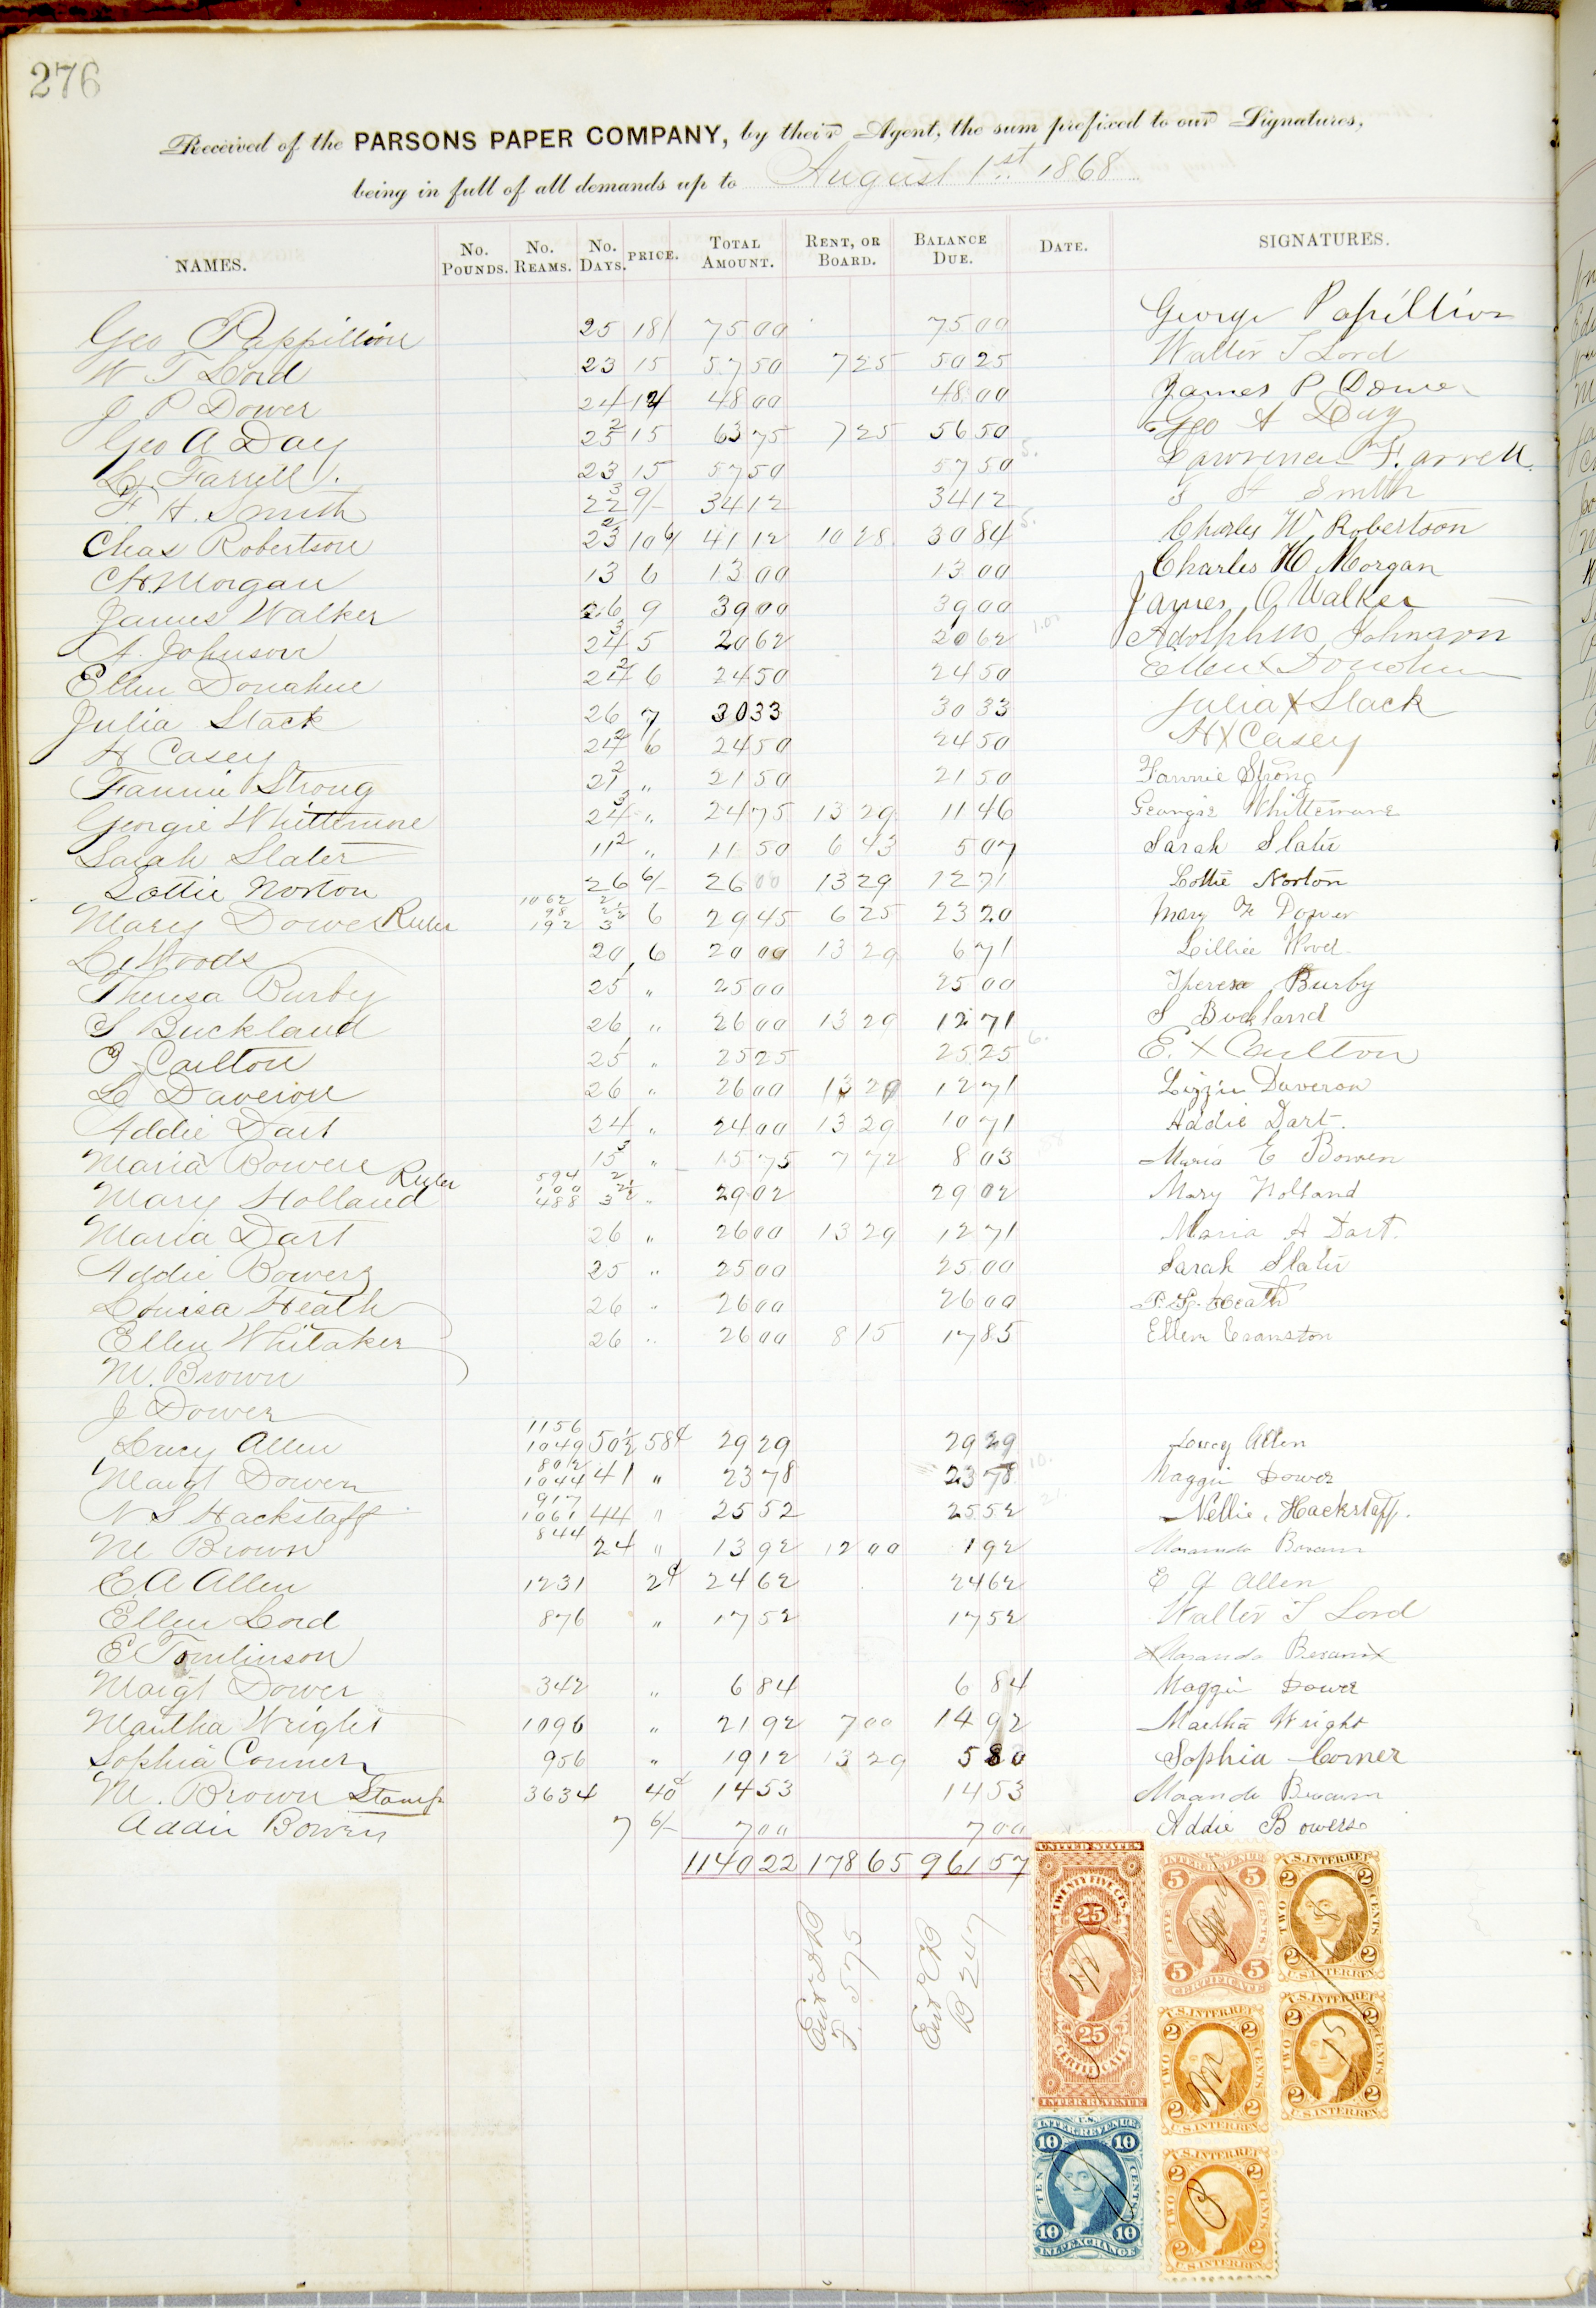 276
Received of the PARSONS PAPER COMPANY, by their Agent, the sum prefixed to our Signatures,
being in full of all demands up to August 1st 1868
NAMES. No. Pounds. No. Reams. No. Days. PRICE. Total Amount. Rent, or Board. Balance Due. Date. SIGNATURES.
Geo Pappillion 25 18/ 75 00 75 00 George Papillion
W T Lord 23 15 57 50 7 25 50 25 Walter T Lord
J P Dower 24 12/ 48 00 48 00 James P Dower
Geo A Day 25 2 15 63 75 7 25 56 50 Geo A Day
L. Farrell 23 15 57 50 57 50 Lawrence Farrell
F. H. Smith 22 3 9/- 34 12 34 12 F H Smith
Chas Robertson 23 2 10 6/ 41 12 10 28 30 84 Charles W. Robertson
C H. Morgan 13 6 13 00 13 00 Charles H Morgan
James Walker 26 9 39 00 39 00 James O Walker
A. Johnson 24 3 5 20 62 20 62 1.00 Adolphus Johnson
Ellen Donahue 24 2 6 24 50 24 50 Ellen X Donohue
Julia Slack 26 7 30 33 30 33 Julia X Slack
H Casey 24 2 6 24 50 24 50 H X Casey
Fannie Strong 21 2 " 21 50 21 50 Fannie Strong
Georgie Whittemore 24 3 " 24 75 13 29 11 46 Georgie Whittemore
Sarah Slater 11 2 " 11 50 6 43 5 07 Sarah Slater
Lottie Norton 26 6/- 26 00 13 29 12 71 Lottie Norton
Mary Dower Ruler 1062 98 192 2½ 3 6 29 45 6 25 23 20 Mary Dower
L. Woods 20 6 20 00 13 29 6 71 Lillie Wood
Theresa Burby 25 " 25 00 25 00 Theresa Burby
S Buckland 26 " 26 00 13 29 12 71 S Buckland
Carlton 25 1 " 25 25 25 25 E. X Carlton
L Daveron 26 " 26 00 13 29 12 71 Lizzie Daveron
Addie Dart 24 " 24 00 13 29 10 71 Addie Dart.
Maria Bowen 15 3 " 15 75 7 72 8 03 Maria E Bowen
Mary Holland Ruler 594 100 488 2 2½ 3 " 29 02 29 02 Mary Holland
Maria Dart 26 " 26 00 13 29 12 71 Maria A Dart.
Addie Bowers 25 " 25 00 25 00 Sarah Slater
Louisa Heath 26 " 26 00 26 00 Heath
Ellen Whitaker 26 " 26 00 8 15 17 85 Ellen Cranston
M. Brown
J Dower
Lucy Allen 1156 1049 50½ 58¢ 29 29 29 29 Lucy Allen
Maigt Dower 802 1044 41 " 23 78 23 78 Maggie Dower
N S Hackstaff 917 1061 44 " 25 52 25 52 Nellie Hackstaff.
M Brown 844 24 " 13 92 12 00 1 92 Brown
E A Allen 1231 2¢ 24 62 24 62 E A Allen
Ellen Lord 876 " 17 52 17 52 Walter T Lord
E Tomlinson
Maigt Dower 342 " 6 84 6 84 Maggie Dower
Martha Wright 1096 " 21 92 7 00 14 92 Martha Wright
Sophia Conner 956 " 19 12 13 29 5 80 Sophia Corner
M. Brown Stamp 3634 40¢ 14 53 14 53 Brown
Addie Bowers 7 6/- 7 00 7 00 Addie Bowers
1140 22 178 65 961 57
Ent P. 575
Ent P 247
UNITED STATES
TWENTY FIVE CTS.
25
25
CERTIFICATE
INTER. REVENUE
INTER. REVENUE
5 5
FIVE CENTS
5 5
CERTIFICATE
U.S. INTER. REV.
2 2
TWO CENTS
2 2
U.S. INTER. REV.
U.S. INTER. REV.
2 2
TWO CENTS
2 2
U.S. INTER. REV.
U.S. INTER. REV.
2 2
TWO CENTS
15
2 2
U.S. INTER. REV.
U.S.
INTER. REVENUE
10 10
TEN CENTS
10 10
INL. EXCHANGE
U.S. INTER. REV.
2 2
TWO CENTS
2 2
U.S. INTER. REV.